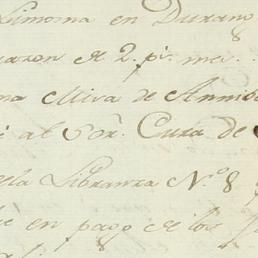 Limosna en Durang
razon de 2. ps. me..
na Misa de Anniv
al Sor. Cura de
dela Libranza N.º 8
en pago de los